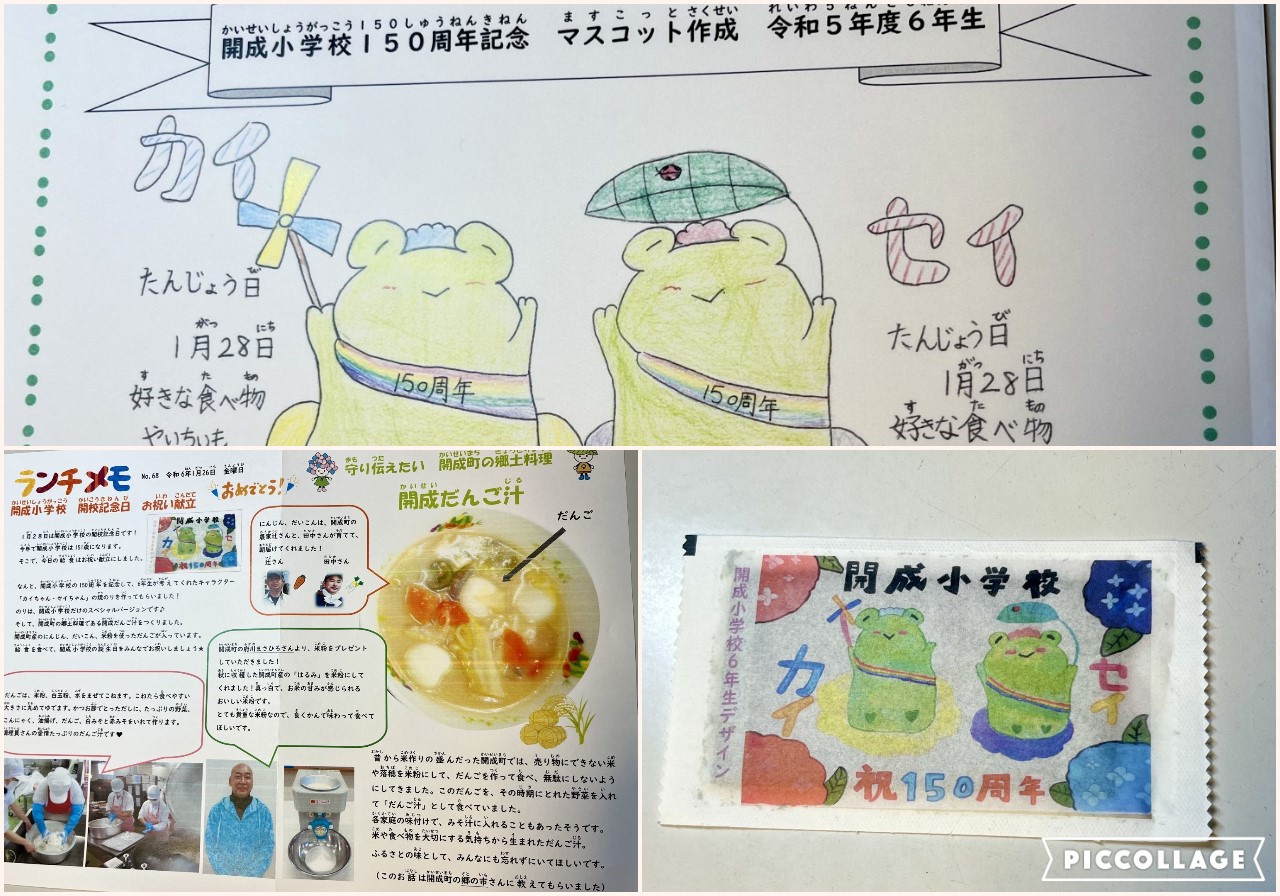 開成小学校150周年記念　マスコット作成　令和5年度6年生
かいせいしょうがっこう150しゅうねんきねん　ますこっとさくせい
カイ
たんじょう日
1月28日
好きな食べ物
やいちいも
150周年
セイ
たんじょう日
1月28日
好きな食べ物
150周年
ランチメモ
No.68　令和6年1月26日　金曜日
開成小学校　開校記念日　お祝い献立
おめでとう!
1月28日は開成小学校の開校記念日です！
今年で開成小学校は151歳になります。
そこで、今日の給食はお祝い献立にしました。
なんと、開成小学校の150周年を記念して、6年生が考えてくれたキャラクター
「カイちゃん・セイちゃん」の焼のりを作ってもらいました！
のりは、開成小学校だけのスペシャルバージョンです♪
そして、開成町の郷土料理である開成だんご汁をつくりました。
開成町産のにんじん、だいこん、米粉を使っただんごが入っています。
給食を食べて、開成小学校の誕生日をみんなでお祝いしましょう★
だんごは、米粉、白玉粉、水をまぜてこねます。これたら食べやすい
大きさに丸めてゆでます。かつお節でとっただしに、たっぷりの野菜、
こんにゃく、油揚げ、だんご、白みそと赤みそをいれて作ります。
調理員さんの愛情たっぷりのだんご汁です♥
にんじん、だいこんは、開成町の
農家辻さんと、田中さんが育てて、
届けてくれました！
辻さん
田中さん
開成町の府川まさひろさんより、米粉をプレゼント
していただきました！
秋に収穫した開成町産の「はるみ」を米粉にして
くれました！真っ白で、お米の甘みが感じられる
おいしい米粉です。
とても貴重な米粉なので、良くかんで味わって食べて
ほしいです。
守り伝えたい　開成町の郷土料理
開成だんご汁
だんご
昔から米作りの盛んだった開成町では、売り物にできない米
や落穂を米粉にして、だんごを作って食べ、無駄にしないよう
にしてきました。このだんごを、その時期にとれた野菜を入れ
て「だんご汁」として食べていました。
各家庭の味付けで、みそ汁に入れることもあったそうです。
米や食べ物を大切にする気持ちから生まれただんご汁。
ふるさとの味として、みんなにも忘れずにいてほしいです。
（このお話は開成町の郷の市さんに教えてもらいました）
開成小学校6年生デザイン
開成小学校
カイ
セイ
祝150周年
PICCOLLAGE